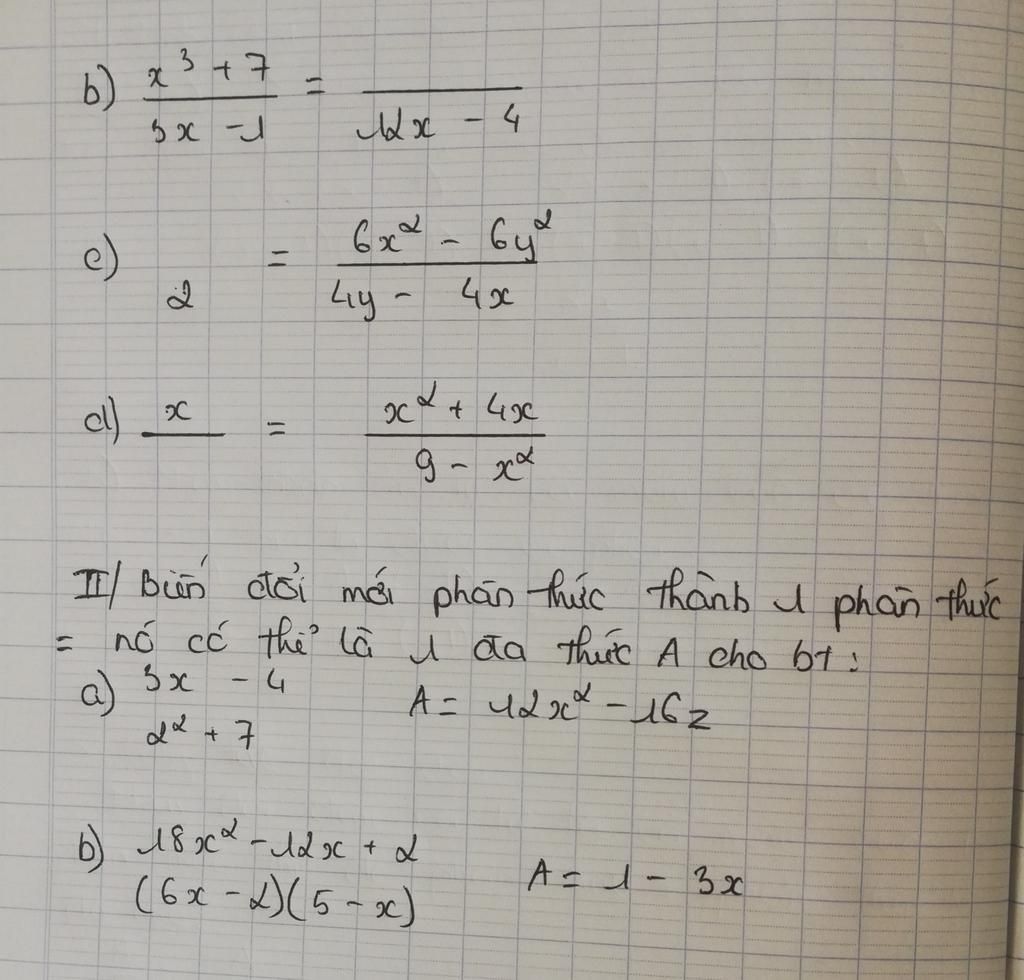 b) x³ + 7 / 3x - 1 = / 12x - 4
c) 2 = 6x² - 6y² / 4y - 4x
d) x / = x² + 4x / 9 - x²
II/ Biến đổi mỗi phân thức thành 1 phân thức
= nó có thể là 1 đa thức A cho bt :
a) 3x - 4 A = 12x² - 16z
2² + 7
b) 18x² - 12x + 2 A = 1 - 3x
(6x - 2)(5 - x)